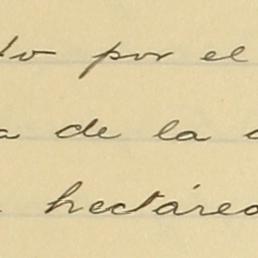 do por el
a de la
hectárea